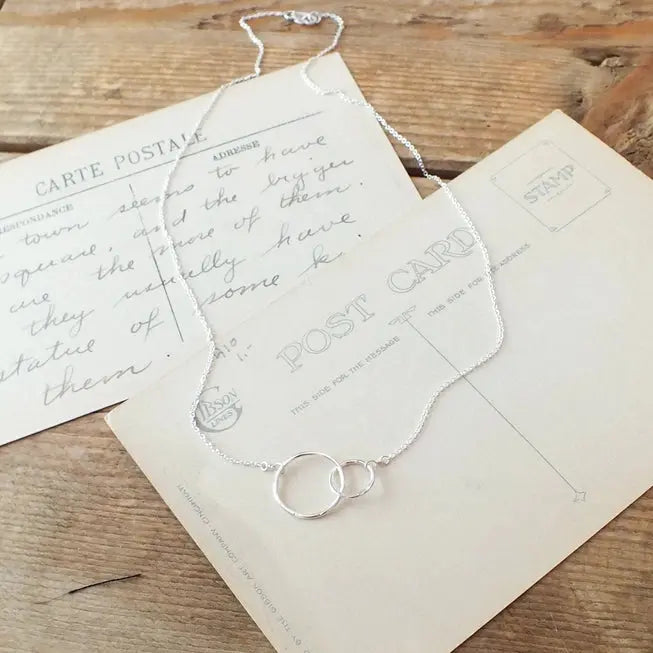 CARTE POSTALE
ADRESSE
RESPONDANCE
town seems to have
square, and the bigger
are the more of them.
they usually have
statue of some
them
POST CARD
THIS SIDE FOR THE MESSAGE
THIS SIDE FOR ADDRESS
STAMP
GIBSON
LINES
BY THE GIBSON ART COMPANY, CINCINNATI